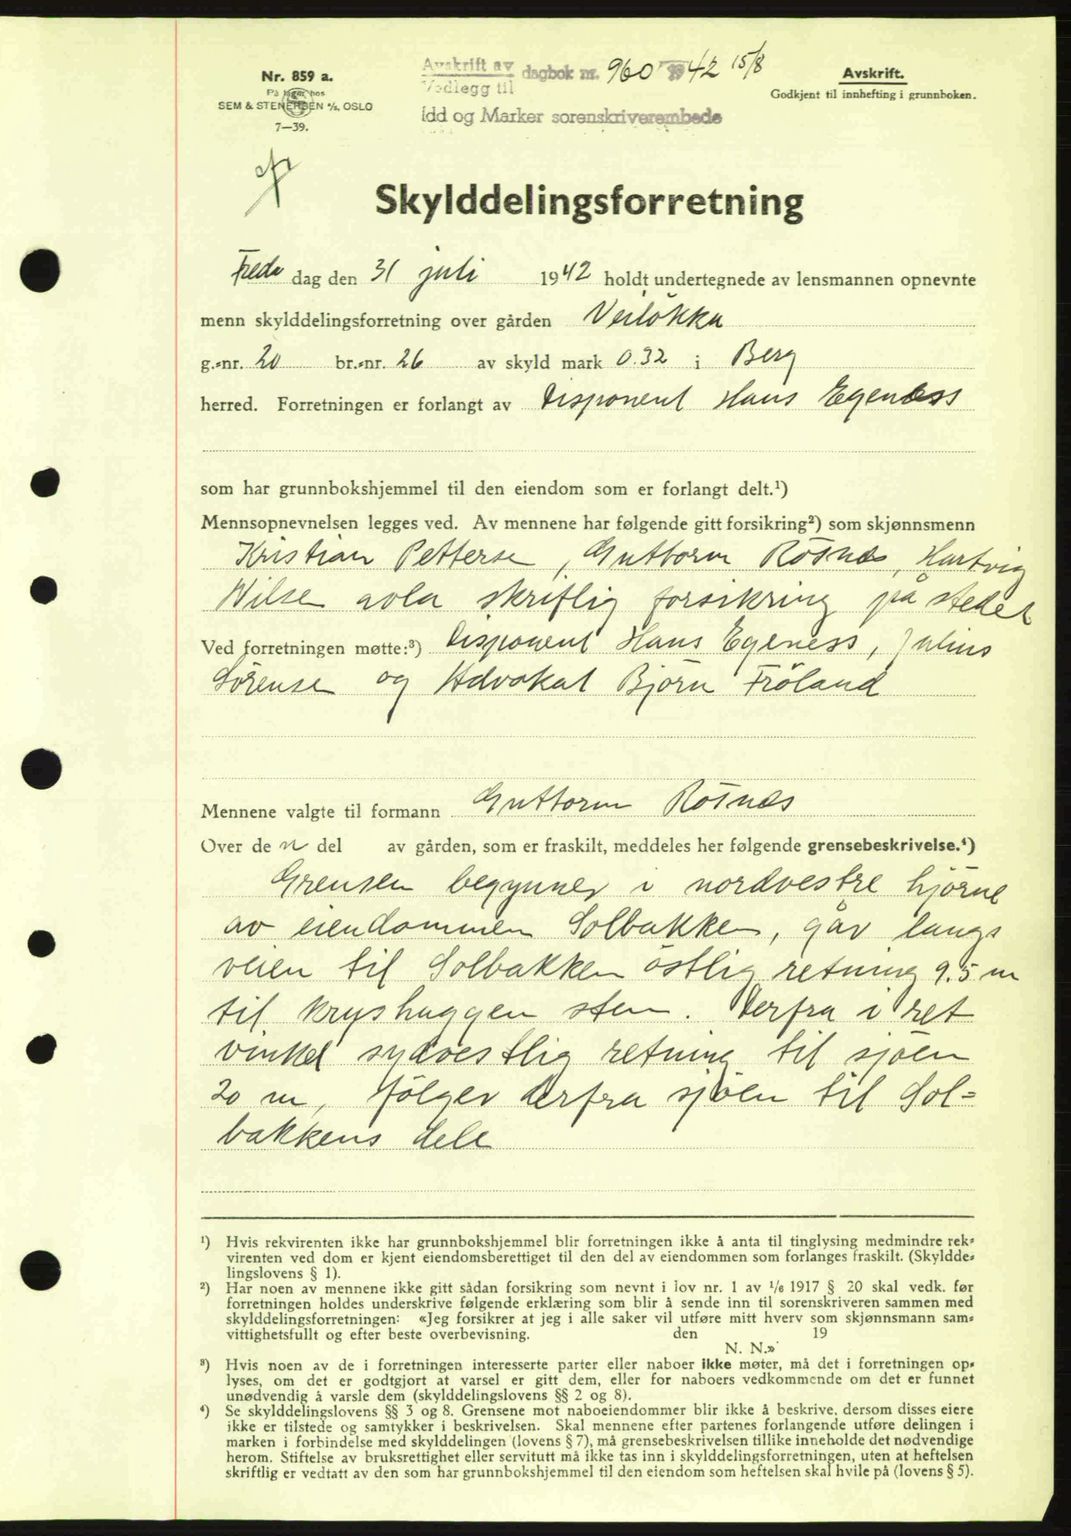 Nr. 859 a.
På lager hos
SEM & STENERSEN A/S, OSLO
7—39.
Avskrift av
Vedlegg til
dagbok nr. 960 1942 15/8
Idd og Marker sorenskriverembede
Avskrift.
Godkjent til innhefting i grunnboken.
Skylddelingsforretning
Freda dag den 31 juli 1942 holdt undertegnede av lensmannen opnevnte
menn skylddelingsforretning over gården Veiløkka
g.-nr. 20 br.-nr. 26 av skyld mark 0.32 i Berg
herred. Forretningen er forlangt av Disponent Hans Egeness
som har grunnbokshjemmel til den eiendom som er forlangt delt.¹)
Mennsopnevnelsen legges ved. Av mennene har følgende gitt forsikring²) som skjønnsmenn
Kristian Petterse, Guttorm Rösnæs, Hartvig
Nilse avla skriflig forsikring på stedet
Ved forretningen møtte:³) Disponent Hans Egeness, Julius
Sörense og Advokat Björn Fröland
Mennene valgte til formann Guttorm Rösnæs
Over de n del av gården, som er fraskilt, meddeles her følgende grensebeskrivelse.⁴)
Grensen begynner i nordvestre hjörne
av eiendommen Solbakken, går langs
veien til Solbakken östlig retning 9.5 m
til kryshuggen sten. Derfra i ret
vinkel sydvestlig retning til sjöen
20 m, fölger derfra sjöen til Sol=
bakkens dele
¹) Hvis rekvirenten ikke har grunnbokshjemmel blir forretningen ikke å anta til tinglysing medmindre rek-
virenten ved dom er kjent eiendomsberettiget til den del av eiendommen som forlanges fraskilt. (Skyldde-
lingslovens § 1).
²) Har noen av mennene ikke gitt sådan forsikring som nevnt i lov nr. 1 av 1/6 1917 § 20 skal vedk. før
forretningen holdes underskrive følgende erklæring som blir å sende inn til sorenskriveren sammen med
skylddelingsforretningen: «Jeg forsikrer at jeg i alle saker vil utføre mitt hverv som skjønnsmann sam-
vittighetsfullt og efter beste overbevisning. den 19
N. N.»
³) Hvis noen av de i forretningen interesserte parter eller naboer ikke møter, må det i forretningen op-
lyses, om det er godtgjort at varsel er gitt dem, eller for naboers vedkommende om det er funnet
unødvendig å varsle dem (skylddelingslovens §§ 2 og 8).
⁴) Se skylddelingslovens §§ 3 og 8. Grensene mot naboeiendommer blir ikke å beskrive, dersom disses eiere
ikke er tilstede og samtykker i beskrivelsen. Skal mennene efter partenes forlangende utføre delingen i
marken i forbindelse med skylddelingen (lovens § 7), må grensebeskrivelsen tillike inneholde det nødvendige
herom. Stiftelse av bruksrettighet eller servitutt må ikke tas inn i skylddelingsforretningen, uten at heftelsen
skriftlig er vedtatt av den som har grunnbokshjemmel til den eiendom som heftelsen skal hvile på (lovens § 5).